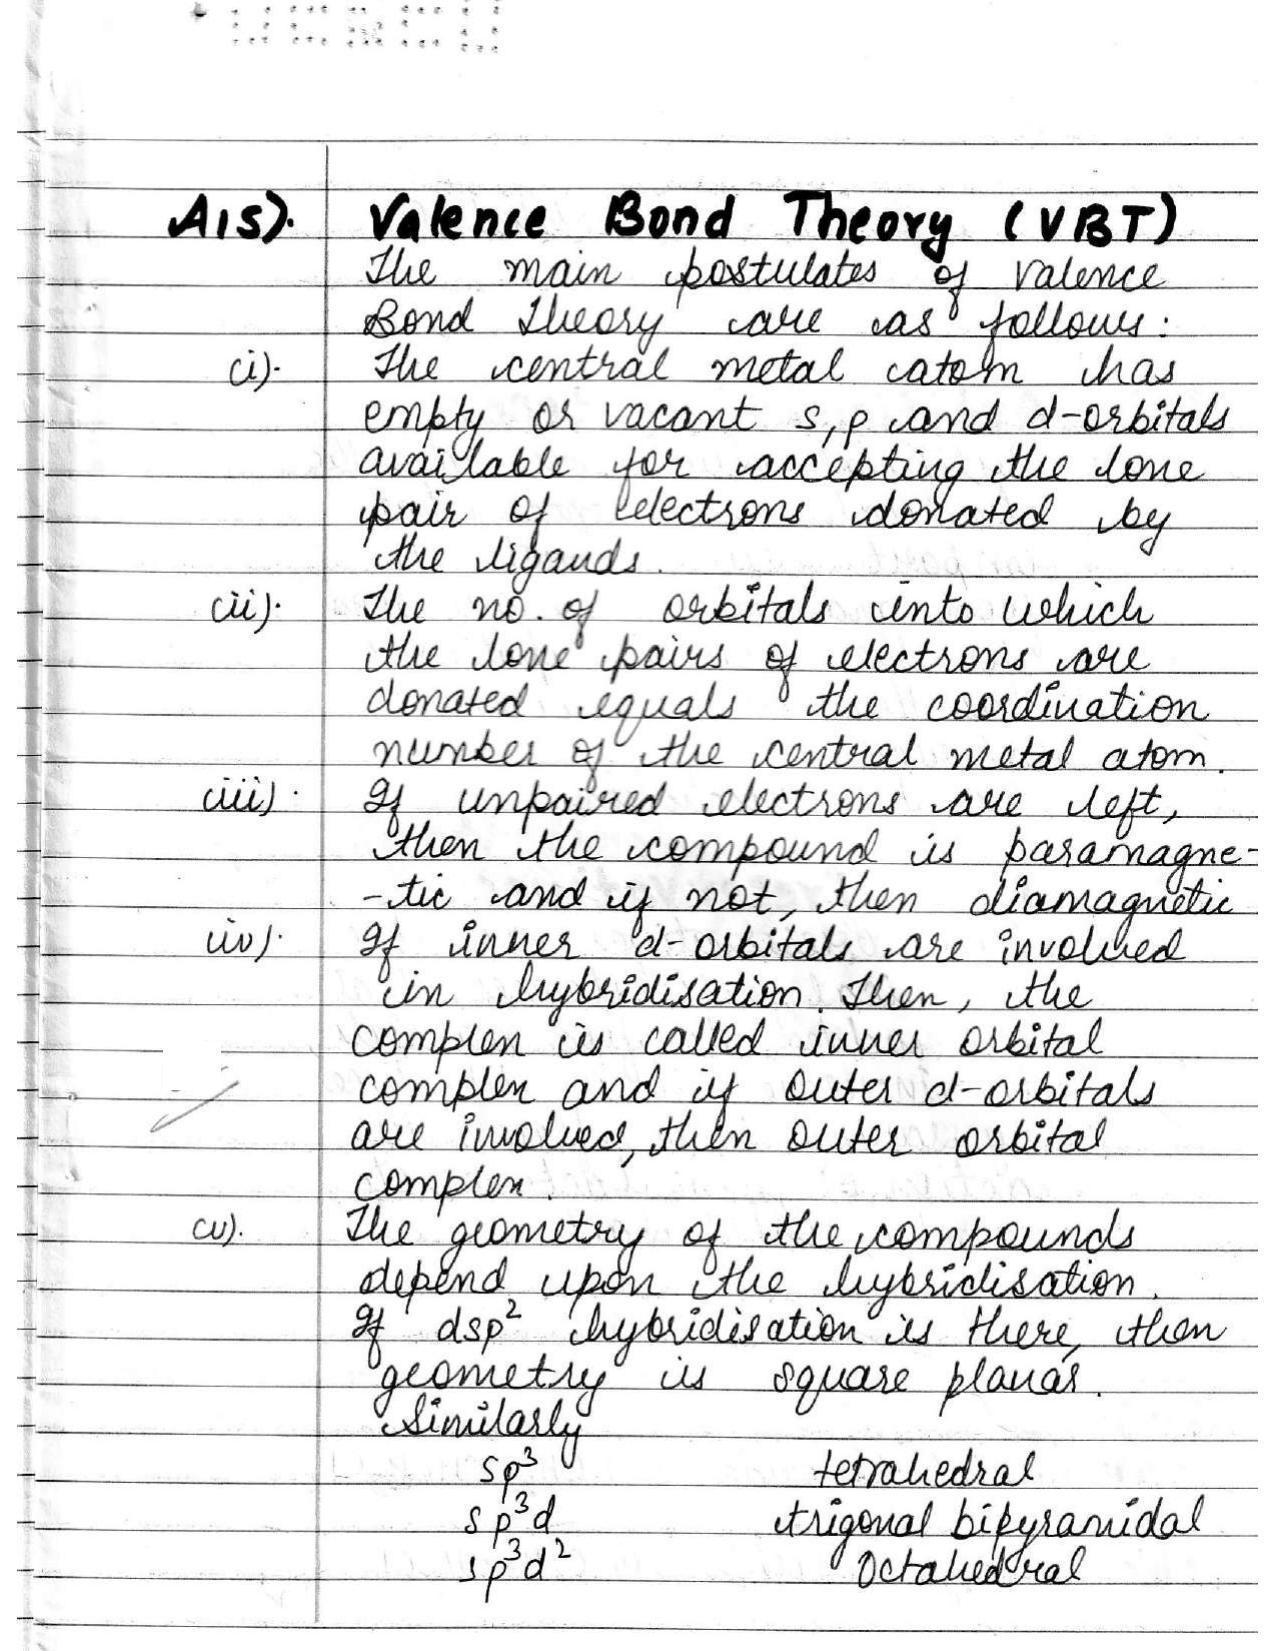 A15). Valence Bond Theory (VBT)
The main postulates of Valence
Bond Theory are as follows:
(i). The central metal atom has
empty or vacant s, p and d-orbitals
available for accepting the lone
pair of electrons donated by
the ligands.
(ii). The no. of orbitals into which
the lone pairs of electrons are
donated equals the coordination
number of the central metal atom.
(iii). If unpaired electrons are left,
then the compound is paramagne-
-tic and if not, then diamagnetic
(iv). If inner d-orbitals are involved
in hybridisation. Then, the
complex is called inner orbital
complex and if outer d-orbitals
are involved, then outer orbital
complex.
(v). The geometry of the compounds
depend upon the hybridisation.
If dsp² hybridisation is there, then
geometry is square planar.
Similarly
sp³ tetrahedral
sp³d trigonal bipyramidal
sp³d² Octahedral